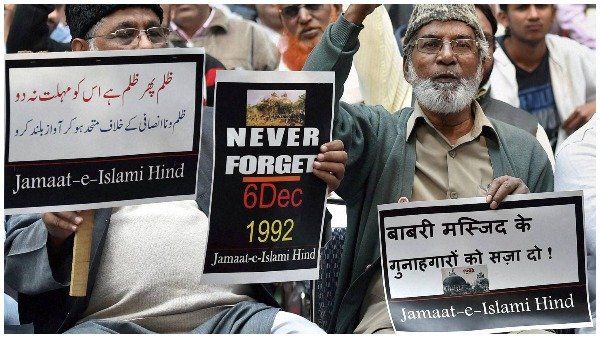 ظلم پھر ظلم ہے اس کو مہلت نہ دو
ظلم و ناانصافی کے خلاف متحد ہو کر آواز بلند کرو
Jamaat-e-Islami Hind
NEVER
FORGET
6Dec
1992
Jamaat-e-Islami Hind
बाबरी मस्जिद के
गुनाहगारों को सज़ा दो !
Jamaat-e-Islami Hind